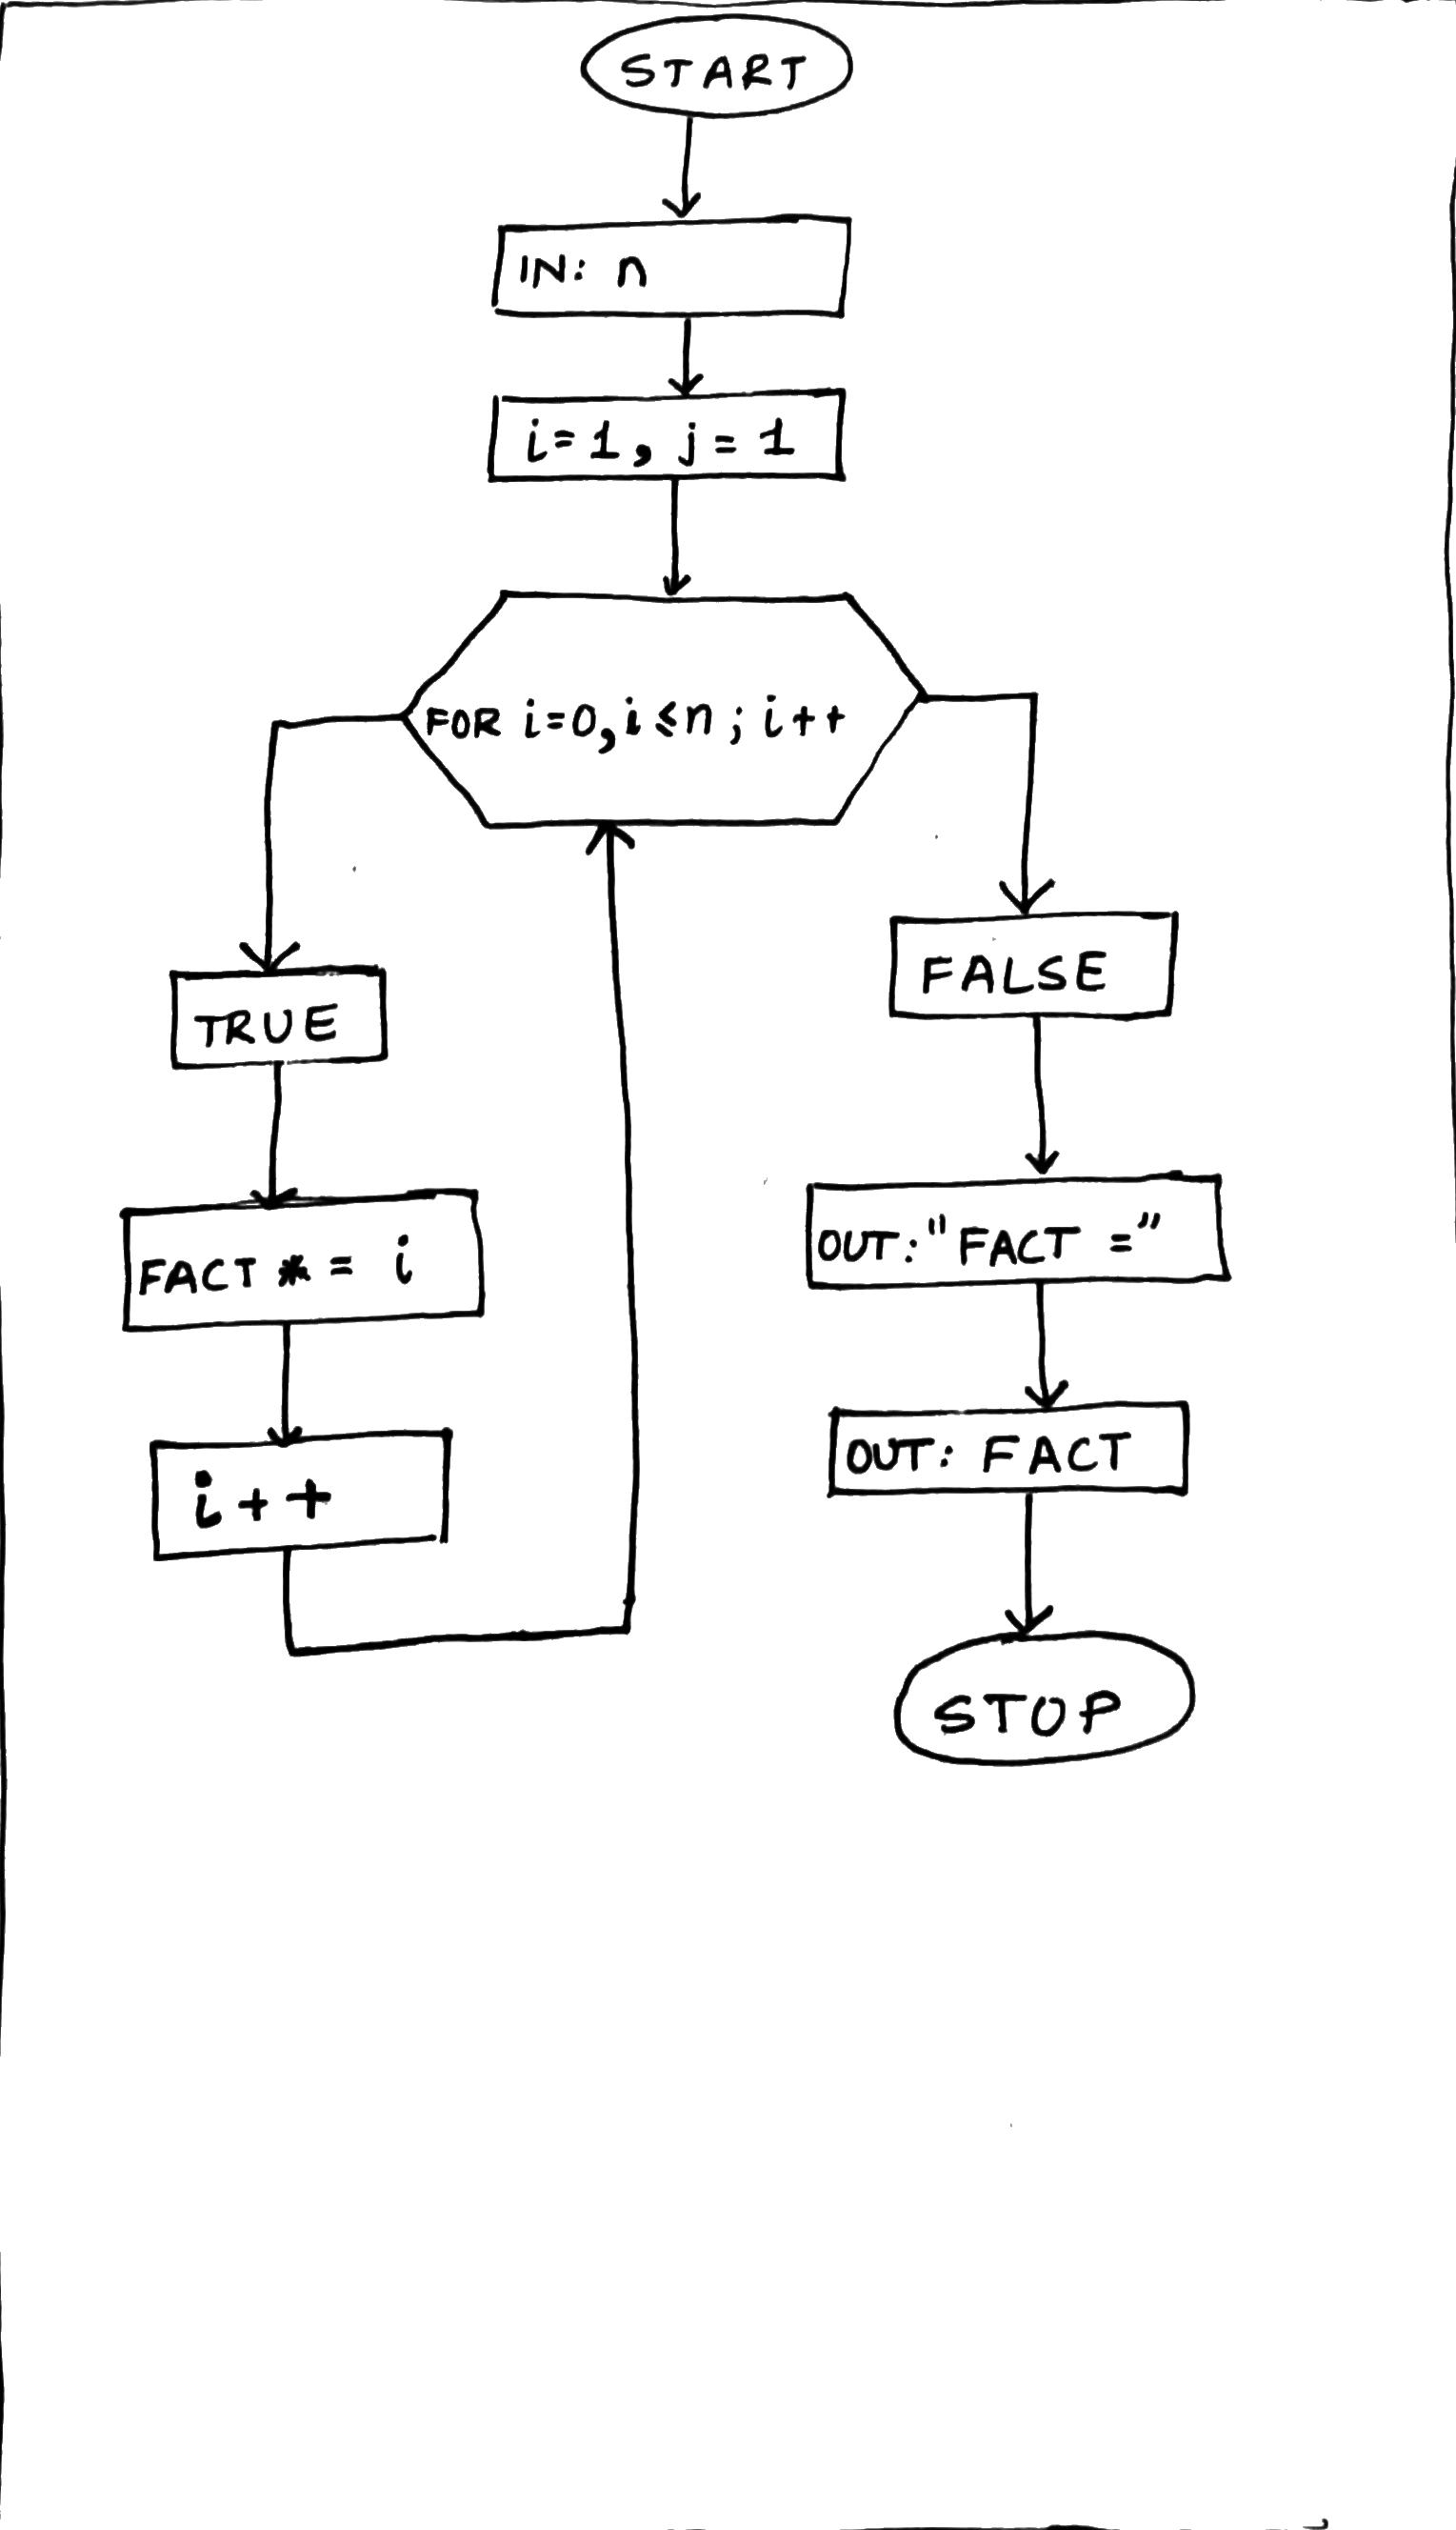 START
IN: n
i=1, j=1
FOR i=0, i≤n; i++
TRUE
FACT *= i
i++
FALSE
OUT: "FACT ="
OUT: FACT
STOP